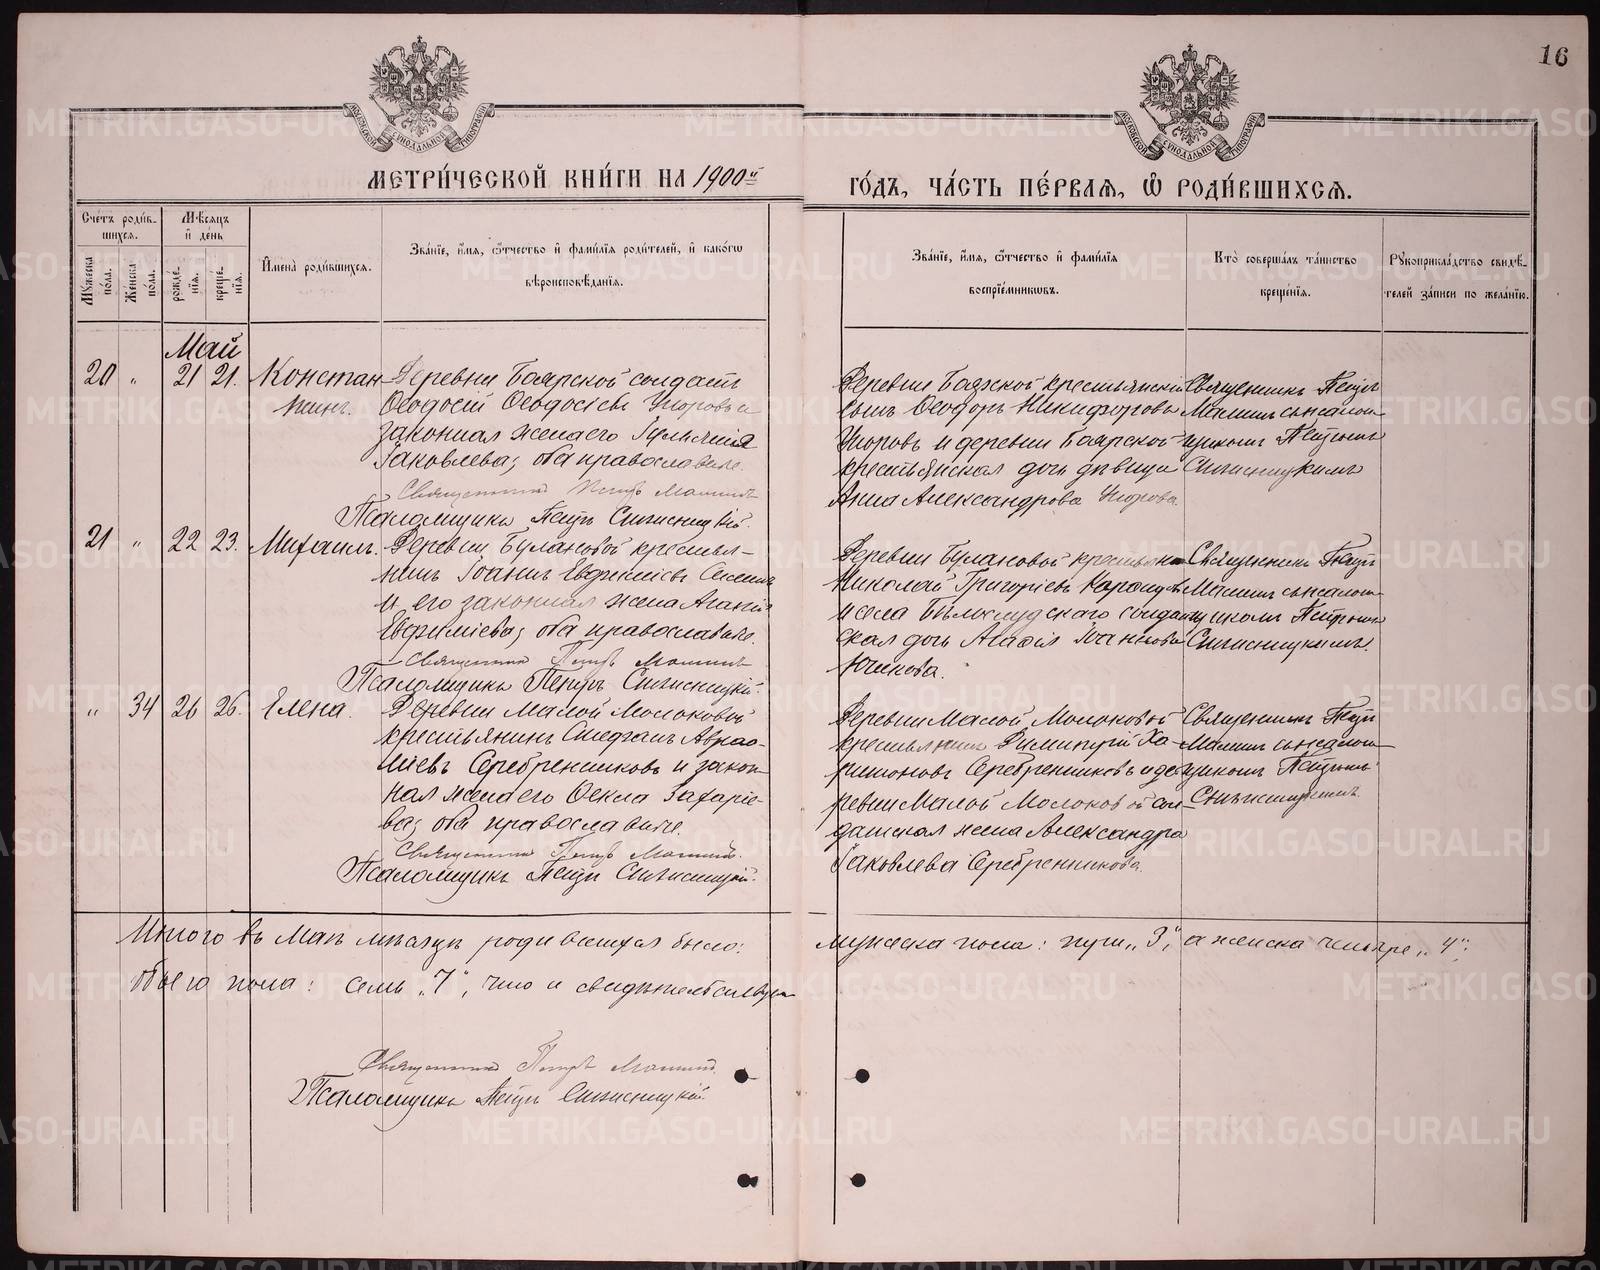 16
МОСКОВСКОЙ СѴНОДАЛЬНОЙ ТИПОГРАФІИ
МОСКОВСКОЙ СѴНОДАЛЬНОЙ ТИПОГРАФІИ
МЕТРИ́ЧЕСКОЙ КНИ́ГИ НА 1900й
ГО́ДЪ, ЧА́СТЬ ПЕ́РВАѦ, Ѡ҆ РОДИ́ВШИХСѦ.
Сче́тъ роди́в-
шихсѧ.
Мꙋ́жеска по́ла.
Же́нска по́ла.
Мѣ́сѧцъ
и҆ де́нь
рожде́нїѧ.
креще́нїѧ.
И҆мена̀ роди́вшихсѧ.
Зва́нїе, и҆́мѧ, ѻ҆́тчество и҆ фами́лїѧ роди́телей, и҆ како́гѡ
вѣроисповѣ́данїѧ.
Зва́нїе, и҆́мѧ, ѻ҆́тчество и҆ фами́лїѧ
воспрїе́мникѡвъ.
Кто̀ соверша́лъ та́инство
креще́нїѧ.
Рꙋкоприкла́дство свидѣ́-
телей за́писи по жела́нїю.
Май
20 " 21 21.
Констан-
тинъ.
Деревни Боярской солдатъ
Ѳеодосій Ѳеодосіевъ Упоровъ и
законная жена его
Іаковлева; оба православные.
Священникъ Петръ Мамин
Псаломщикъ Петръ
Деревни Боярской крестьянскій
сынъ Ѳеодоръ Никифоровъ
Упоровъ и деревни Боярской
крестьянская дочь дѣвица
Анна Александрова Упорова.
Священникъ Петръ
Маминъ съ псалом-
щикомъ Петромъ
21 " 22 23.
Михаилъ.
Деревни Булановой крестья-
нинъ Іоаннъ Евфиміевъ
и его законная жена Агапія
Евфиміева; оба православные.
Священникъ Петръ Мамин
Псаломщикъ Петръ
Деревни Булановой
Николай Григоріевъ
и села Бѣлослудскаго солдат-
ская дочь Агафія Іоаннова
Священникъ Петръ
Маминъ съ псалом-
щикомъ Петромъ
" 34 26 26.
Елена.
Деревни Малой Молоковой
крестьянинъ Стефанъ Авраа-
міевъ Серебренниковъ и закон-
ная жена его Ѳекла Захаріе-
ва; оба православные.
Священникъ Петръ Мамин
Псаломщикъ Петръ
Деревни Малой Молоковой
крестьянинъ Димитрій Ха-
ритоновъ Серебренниковъ и де-
ревни Малой Молоковой сол-
датская жена Александра
Іаковлева Серебренникова.
Священникъ Петръ
Маминъ съ псалом-
щикомъ Петромъ
Итого въ Маѣ мѣсяцѣ родившихся было:
мужеска пола: три „3", а женска четыре „4";
обоего пола: семь „7", что и свидѣтельствуемъ
Священникъ Петръ Мамин
Псаломщикъ Петръ
METRIKI.GASO-URAL.RU